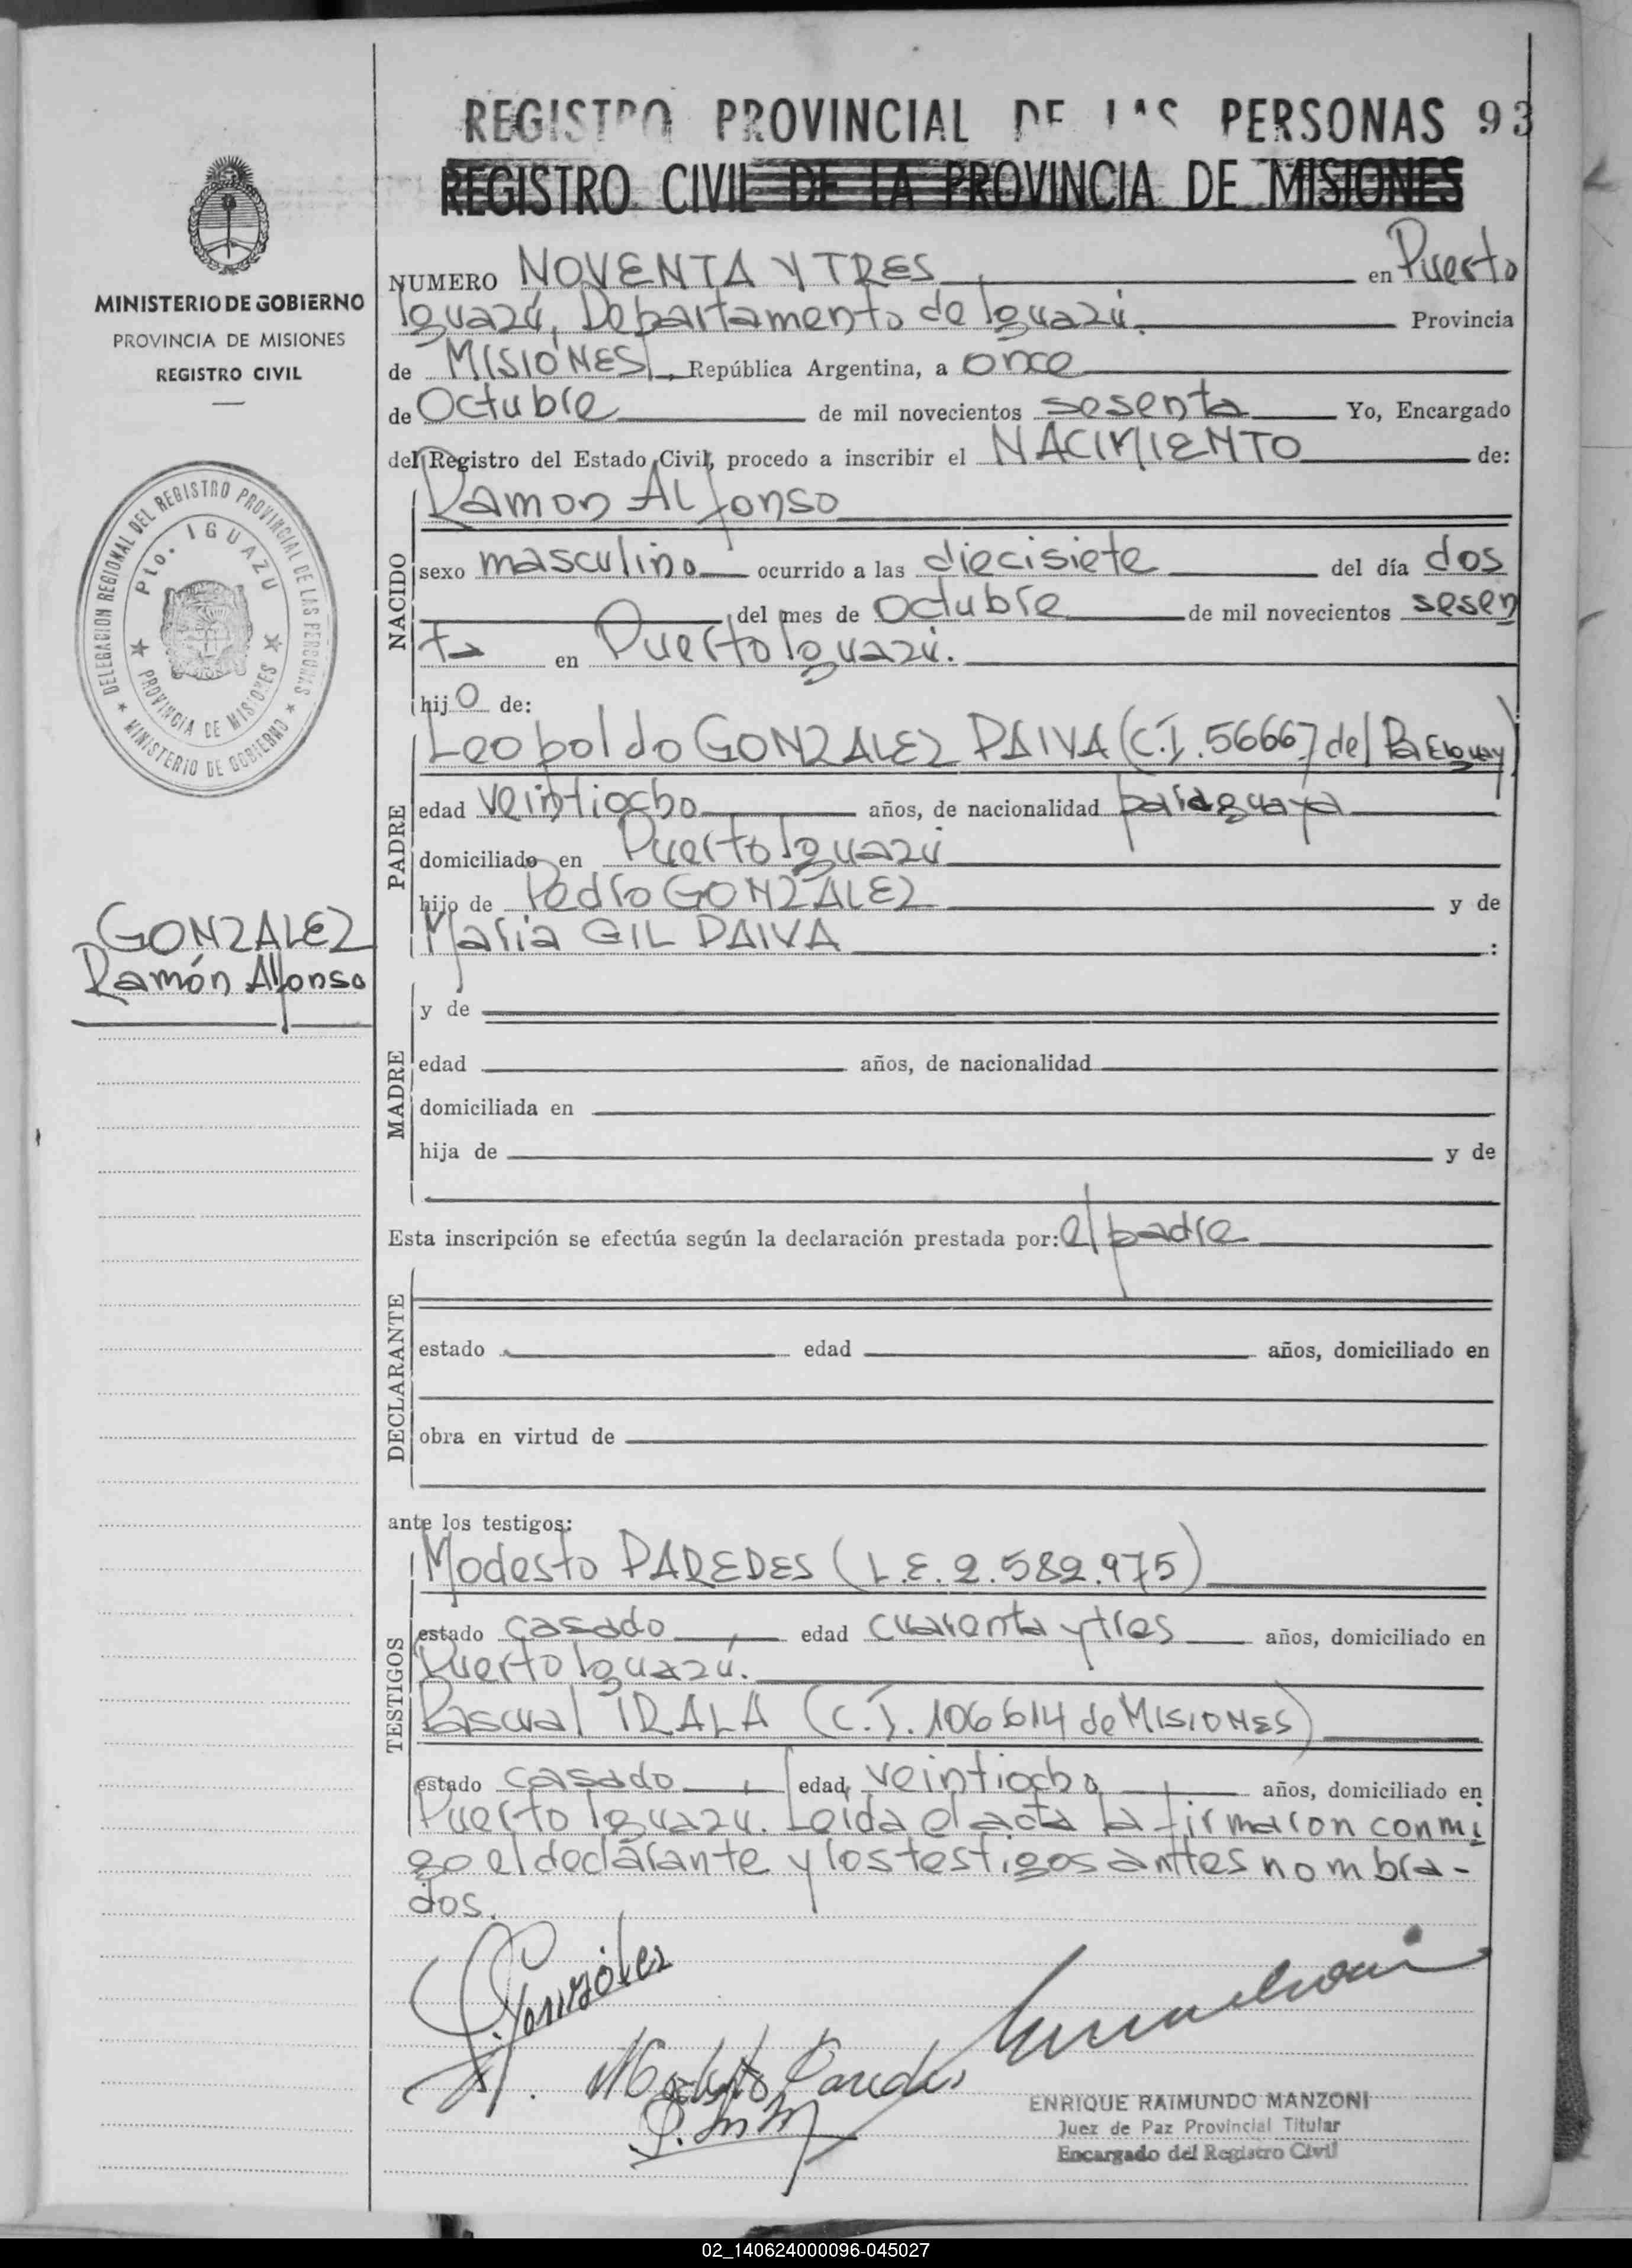 REGISTRO PROVINCIAL DE LAS PERSONAS 93
REGISTRO CIVIL DE LA PROVINCIA DE MISIONES
MINISTERIO DE GOBIERNO
PROVINCIA DE MISIONES
REGISTRO CIVIL
DELEGACION REGIONAL DEL REGISTRO PROVINCIAL DE LAS PERSONAS
★ MINISTERIO DE GOBIERNO ★
Pto. IGUAZU
★ PROVINCIA DE MISIONES ★
GONZALEZ
Ramón Alfonso
NUMERO NOVENTA Y TRES en Puerto
Iguazú, Departamento de Iguazú. Provincia
de MISIONES, República Argentina, a once
de Octubre de mil novecientos sesenta Yo, Encargado
del Registro del Estado Civil, procedo a inscribir el NACIMIENTO de:
NACIDO
Ramon Alfonso
sexo masculino ocurrido a las diecisiete del día dos
del mes de Octubre de mil novecientos sesen
ta en Puerto Iguazú.
hijo de:
PADRE
Leopoldo GONZALEZ PAIVA (C.I. 56667 del Paraguay)
edad veintiocho años, de nacionalidad paraguaya
domiciliado en Puerto Iguazú
hijo de Pedro GONZÁLEZ y de
Maria GIL PAIVA :
MADRE
y de
edad años, de nacionalidad
domiciliada en
hija de y de
Esta inscripción se efectúa según la declaración prestada por: el padre
DECLARANTE
estado edad años, domiciliado en
obra en virtud de
ante los testigos:
TESTIGOS
Modesto PAREDES (L.E. 2.582.975)
estado casado, edad cuarenta y tres años, domiciliado en
Puerto Iguazú.
Pascual IRALA (C.I. 106614 de MISIONES)
estado casado, edad, veintiocho, años, domiciliado en
Puerto Iguazú. Leida el acta la firmaron conmi
go el declarante y los testigos anttes nombra-
dos.
González
Modesto Paredes
ENRIQUE RAIMUNDO MANZONI
Juez de Paz Provincial Titular
Encargado del Registro Civil
02_140624000096-045027